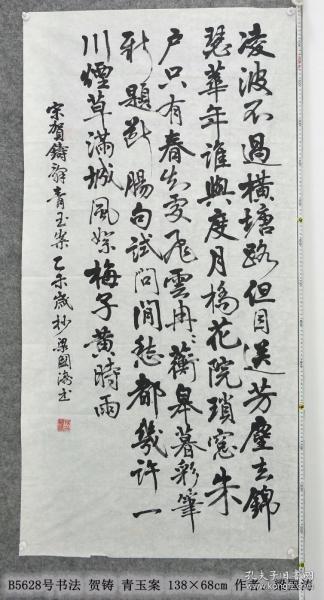 凌波不過橫塘路但目送芳塵去錦
瑟華年誰與度月橋花院瑣窗朱
户只有春知處飛雲冉冉蘅皋暮彩筆
新題斷腸句試問閒愁都幾許一
川煙草滿城風絮梅子黃時雨
宋賀鑄詞青玉案乙未歲抄梁國海書
B5628号书法 贺铸 青玉案 138×68cm 作者：梁国海
孔夫子旧书网